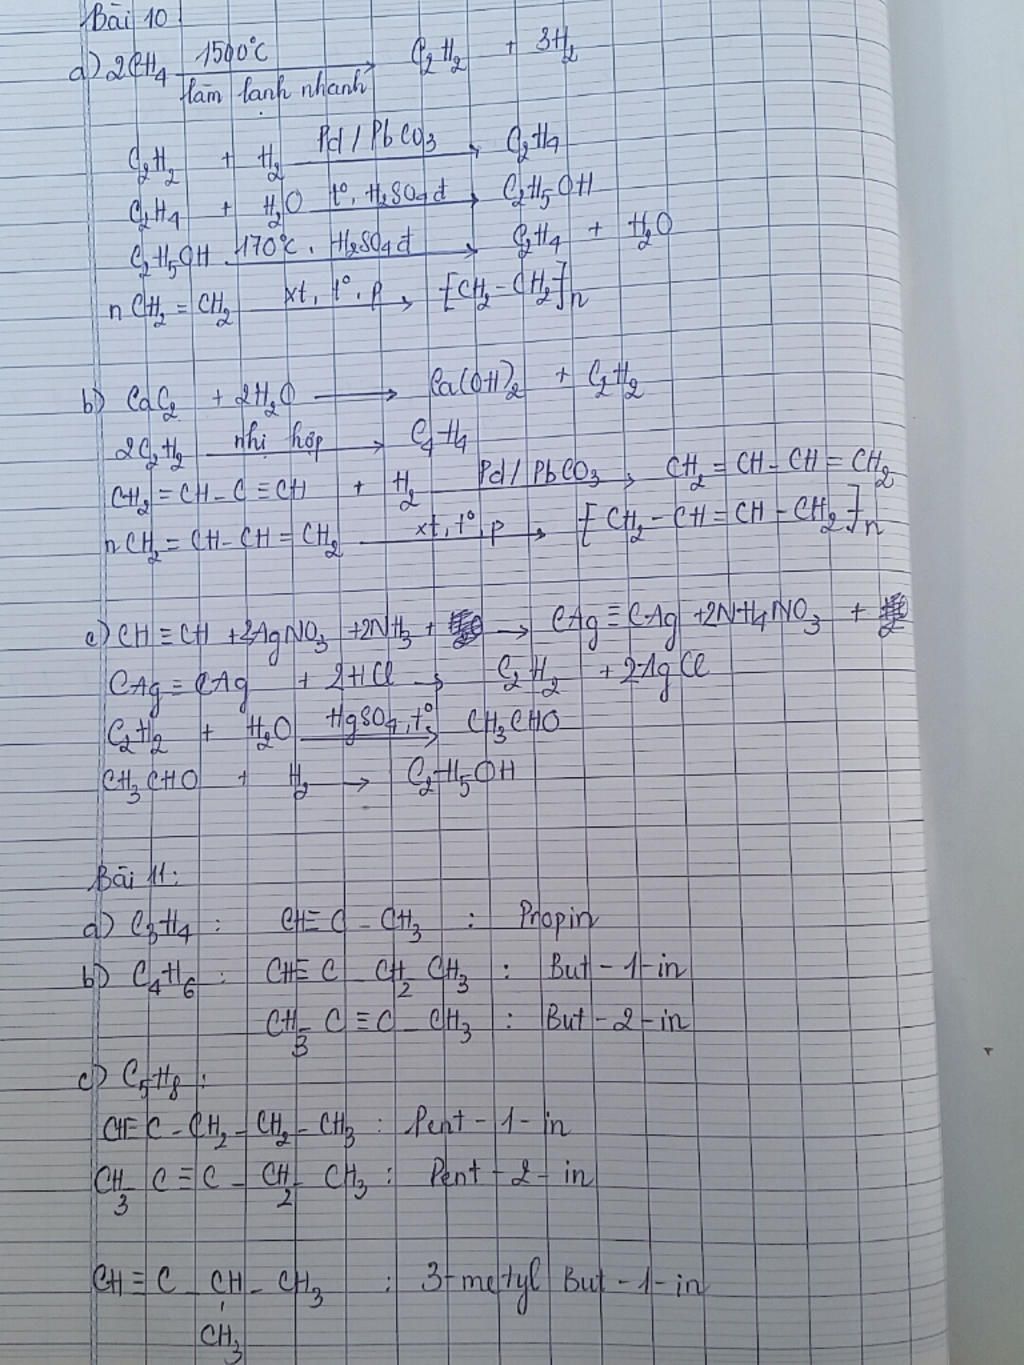 Bài 10
a) 2CH₄ 1500°C làm lạnh nhanh → C₂H₂ + 3H₂
C₂H₂ + H₂ Pd/PbCO₃ → C₂H₄
C₂H₄ + H₂O t°, H₂SO₄đ → C₂H₅OH
C₂H₅OH 170°C, H₂SO₄đ → C₂H₄ + H₂O
nCH₂=CH₂ xt, t°, p → [CH₂-CH₂]n
b) CaC₂ + 2H₂O → Ca(OH)₂ + C₂H₂
2C₂H₂ nhị hợp → C₄H₄
CH₂=CH-C≡CH + H₂ Pd/PbCO₃ → CH₂=CH-CH=CH₂
nCH₂=CH-CH=CH₂ xt, t°, p → [CH₂-CH=CH-CH₂]n
c) CH≡CH + 2AgNO₃ + 2NH₃ + → CAg≡CAg + 2NH₄NO₃ +
CAg≡CAg + 2HCl → C₂H₂ + 2AgCl
C₂H₂ + H₂O HgSO₄, t° → CH₃CHO
CH₃CHO + H₂ → C₂H₅OH
Bài 11:
a) C₃H₄: CH≡C-CH₃ : Propin
b) C₄H₆: CH≡C-CH₂-CH₃ : But-1-in
CH₃-C≡C-CH₃ : But-2-in
c) C₅H₈:
CH≡C-CH₂-CH₂-CH₃ : Pent-1-in
CH₃-C≡C-CH₂-CH₃ : Pent-2-in
CH≡C-CH-CH₃ : 3-metyl But-1-in
CH₃